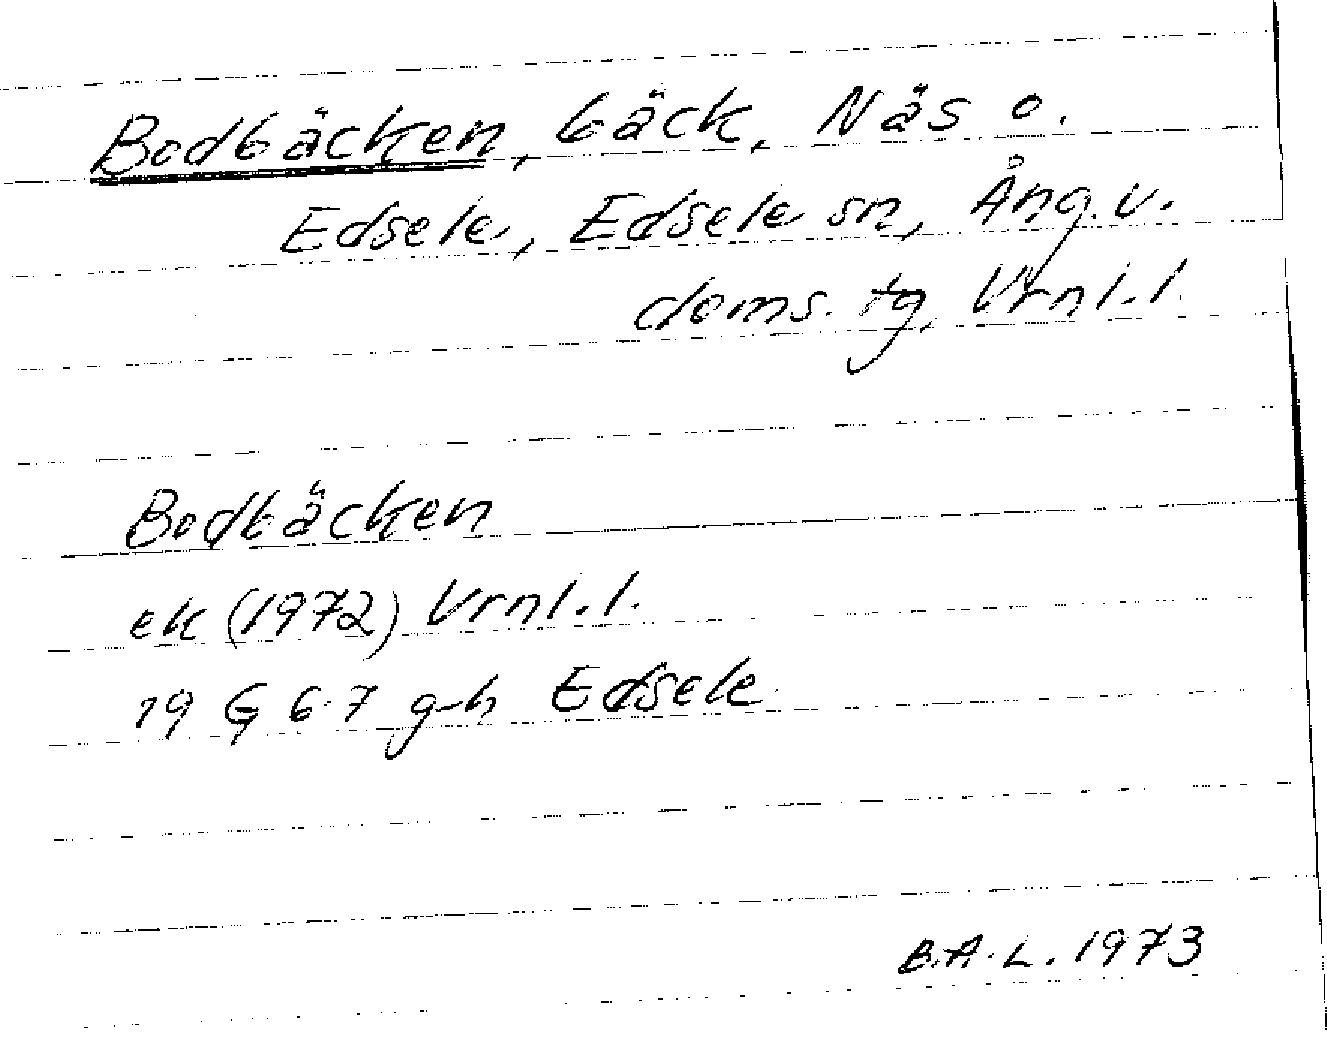 Bodbäcken, bäck, Näs o.
Edsele, Edsele sn, Ång. v.
doms. tg, Vrnl. l.
Bodbäcken
ek (1972) Vrnl. l.
19 G 6-7 g-h Edsele
B.A.L. 1973